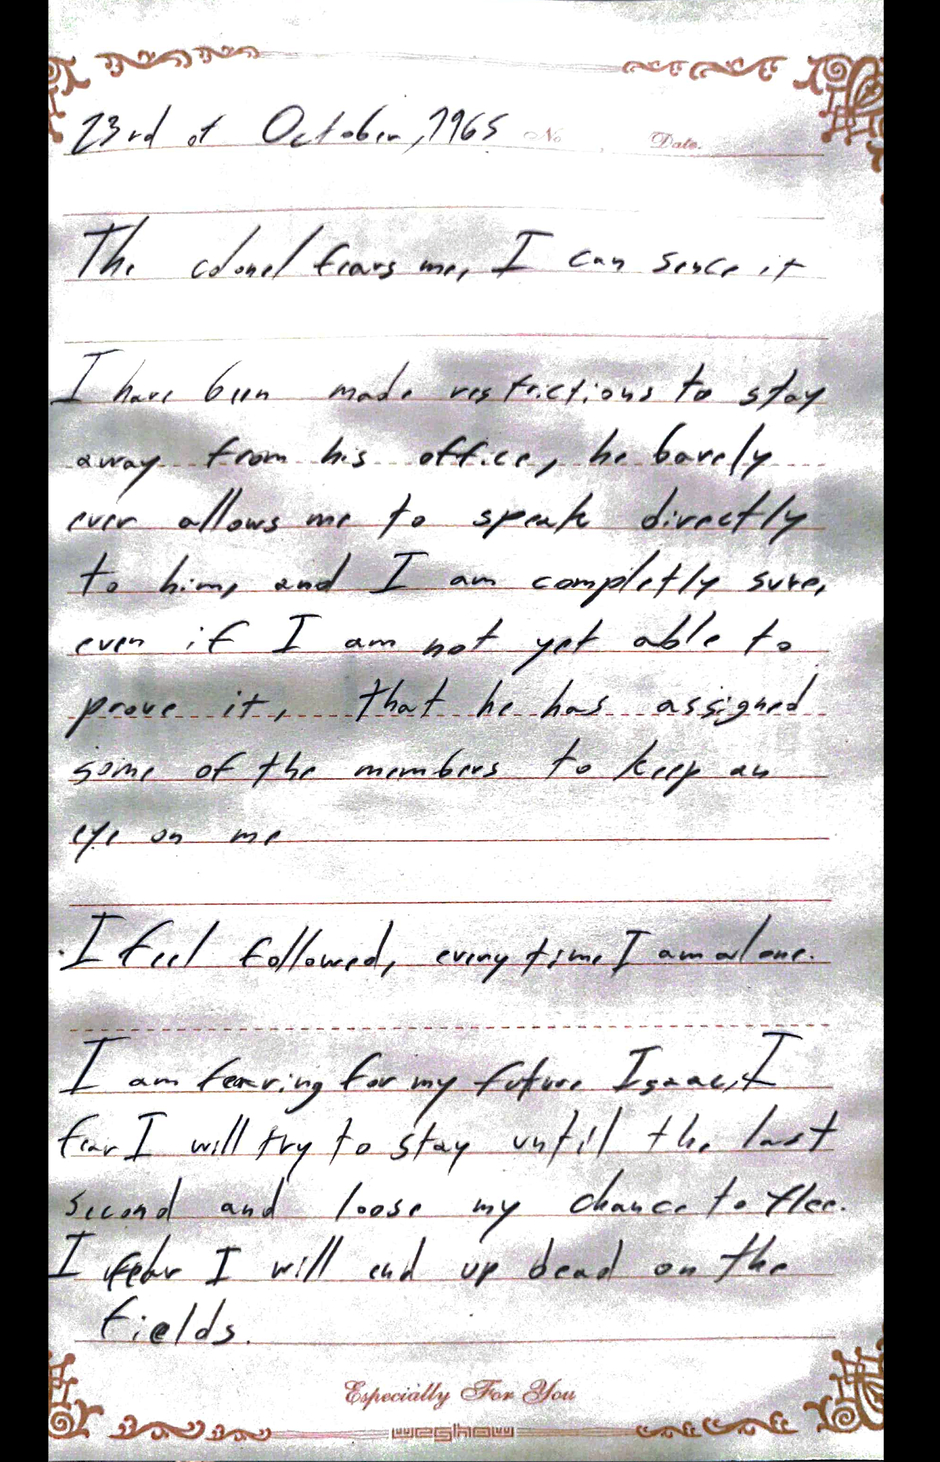 23rd of October, 1965
No. Date.
The colonel fears me, I can sence it
I have been made restrictions to stay
away from his office, he barely
ever allows me to speak directly
to him, and I am completly sure,
even if I am not yet able to
prove it, that he has assigned
some of the members to keep an
eye on me
I feel followed, every time I am alone.
I am fearing for my future Isaac, I
fear I will try to stay until the last
second and loose my chance to flee.
I fear I will end up dead on the
fields.
Especially For You
weshow